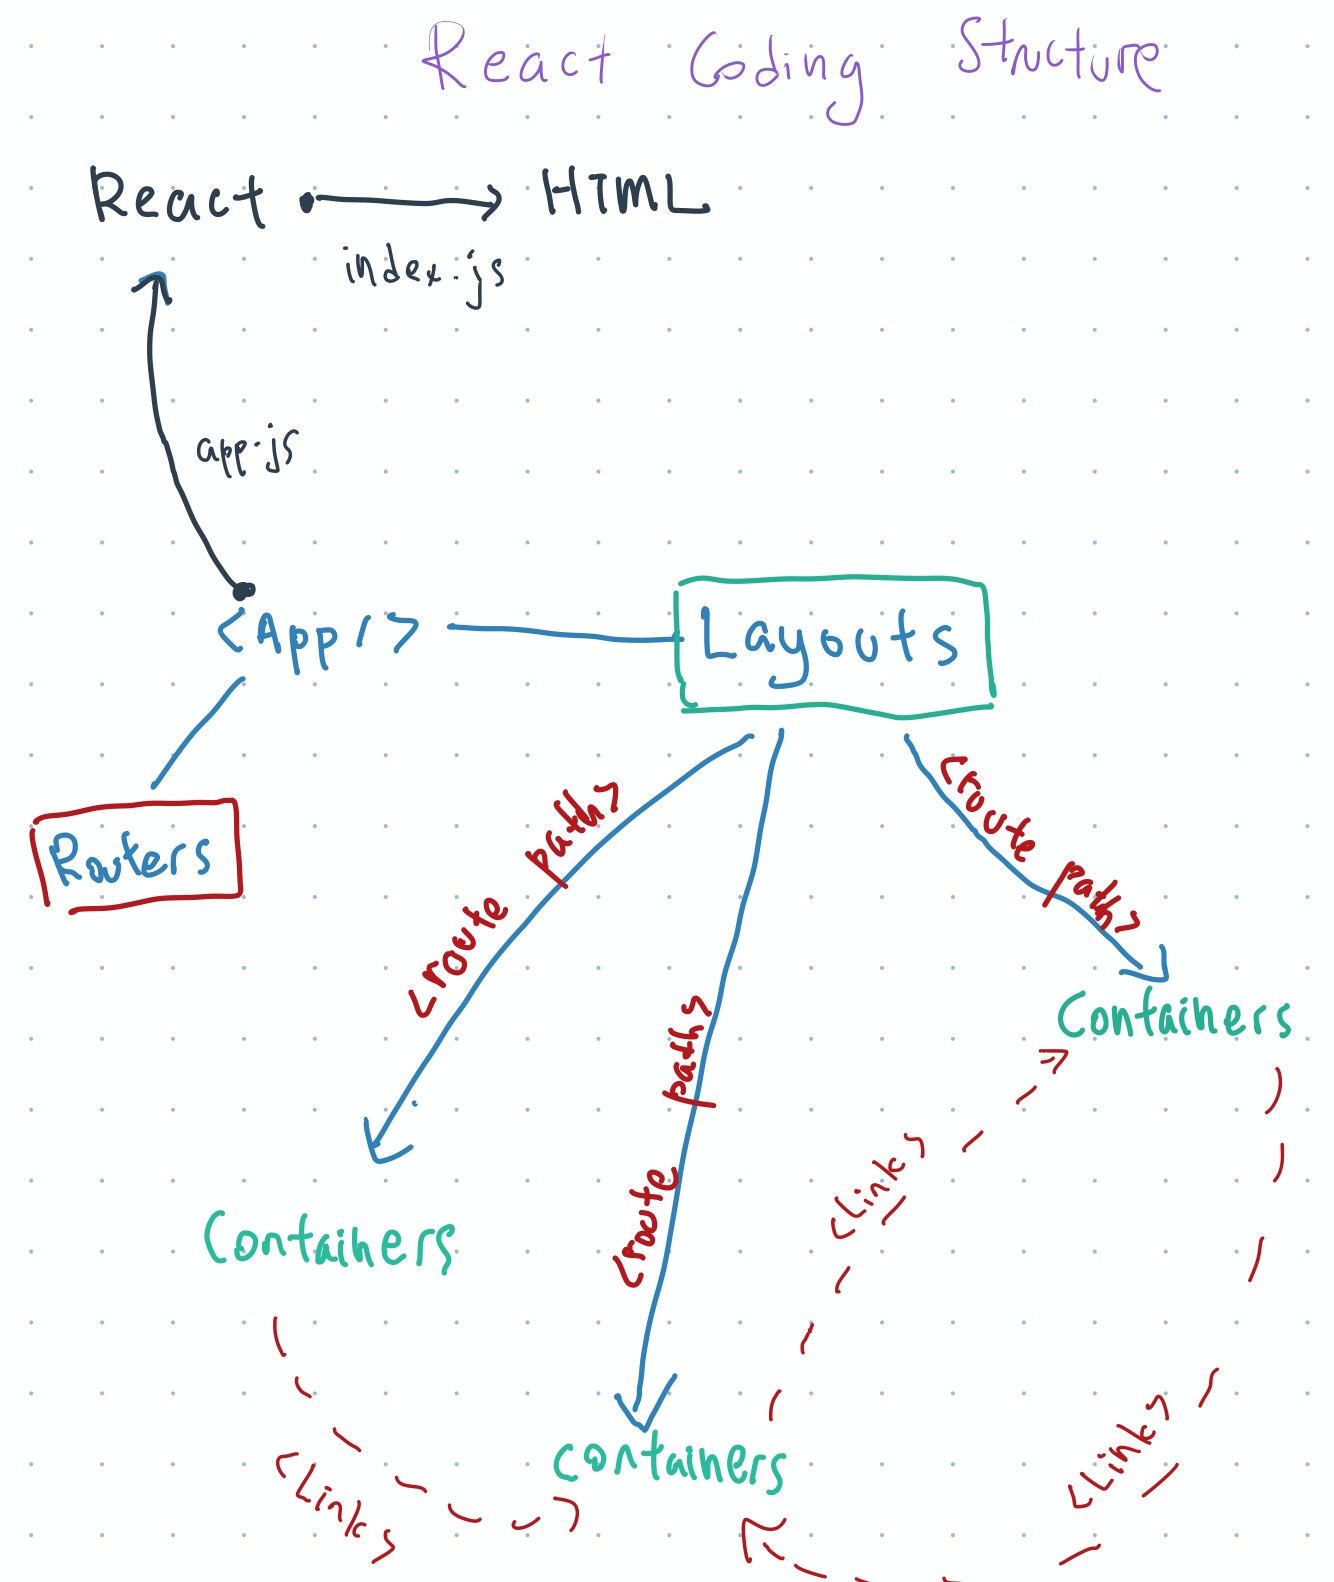 React Coding Structure
React
HTML
index.js
app.js
<App/>
Layouts
Routers
<route path>
<route path>
<route path>
Containers
Containers
containers
<Link>
<Link>
<Link>